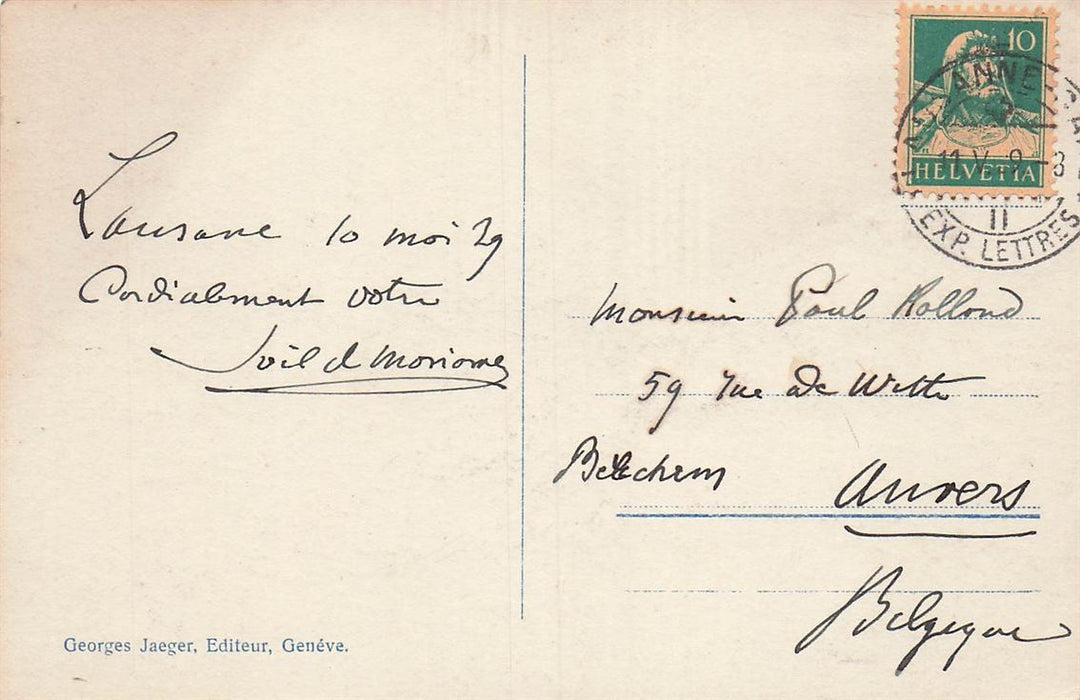 Lausane 10 mai 29
Cordialement votre
Georges Jaeger, Editeur, Genéve.
10
HELVETIA
ANNE
11.V.
II
EXP. LETTRES
Monsieur Paul Rolland
59 rue de Witte
Berchem
Anvers
Belgique